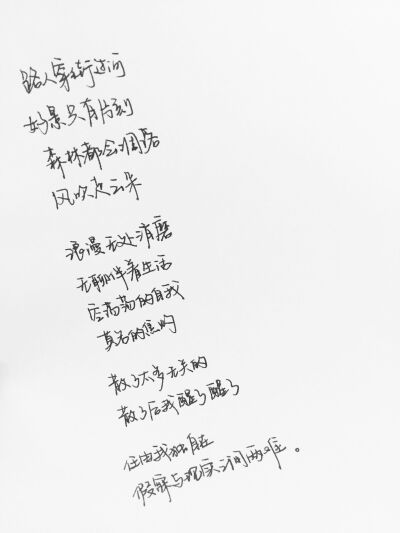 路人穿街过间
好景只有片刻
森林都会凋落
风吹走云朵
浪漫无处消磨
无聊伴着生活
空荡荡的自我
莫名的焦灼
散了太多无关的
散了后我醒了醒了
任由我独自在
假寐与现实之间两难。